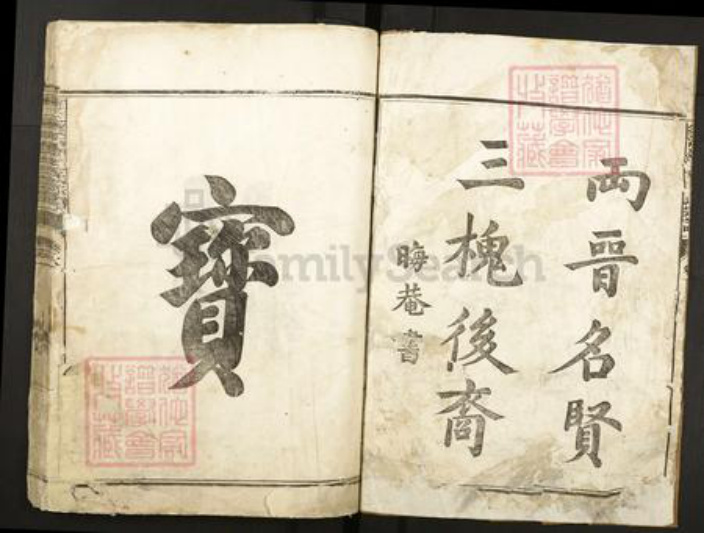 兩晉名賢
三槐後裔
晦菴書
寶
FamilySearch